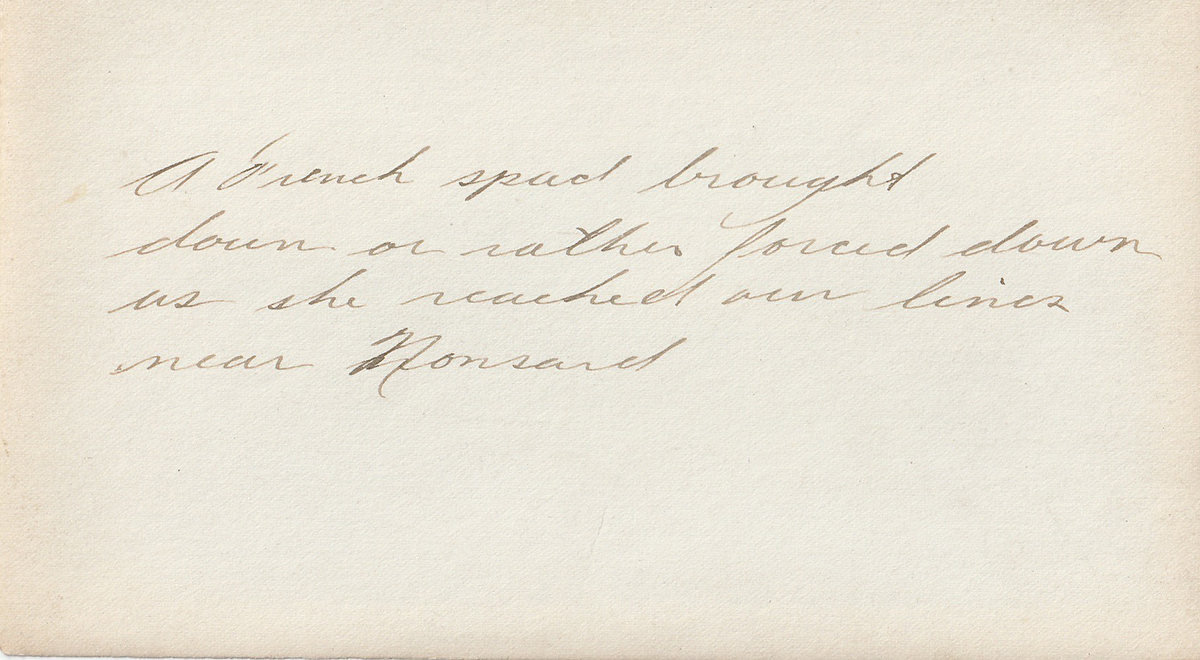 A French spad brought
down or rather forced down
as she reached our lines
near Nonsard